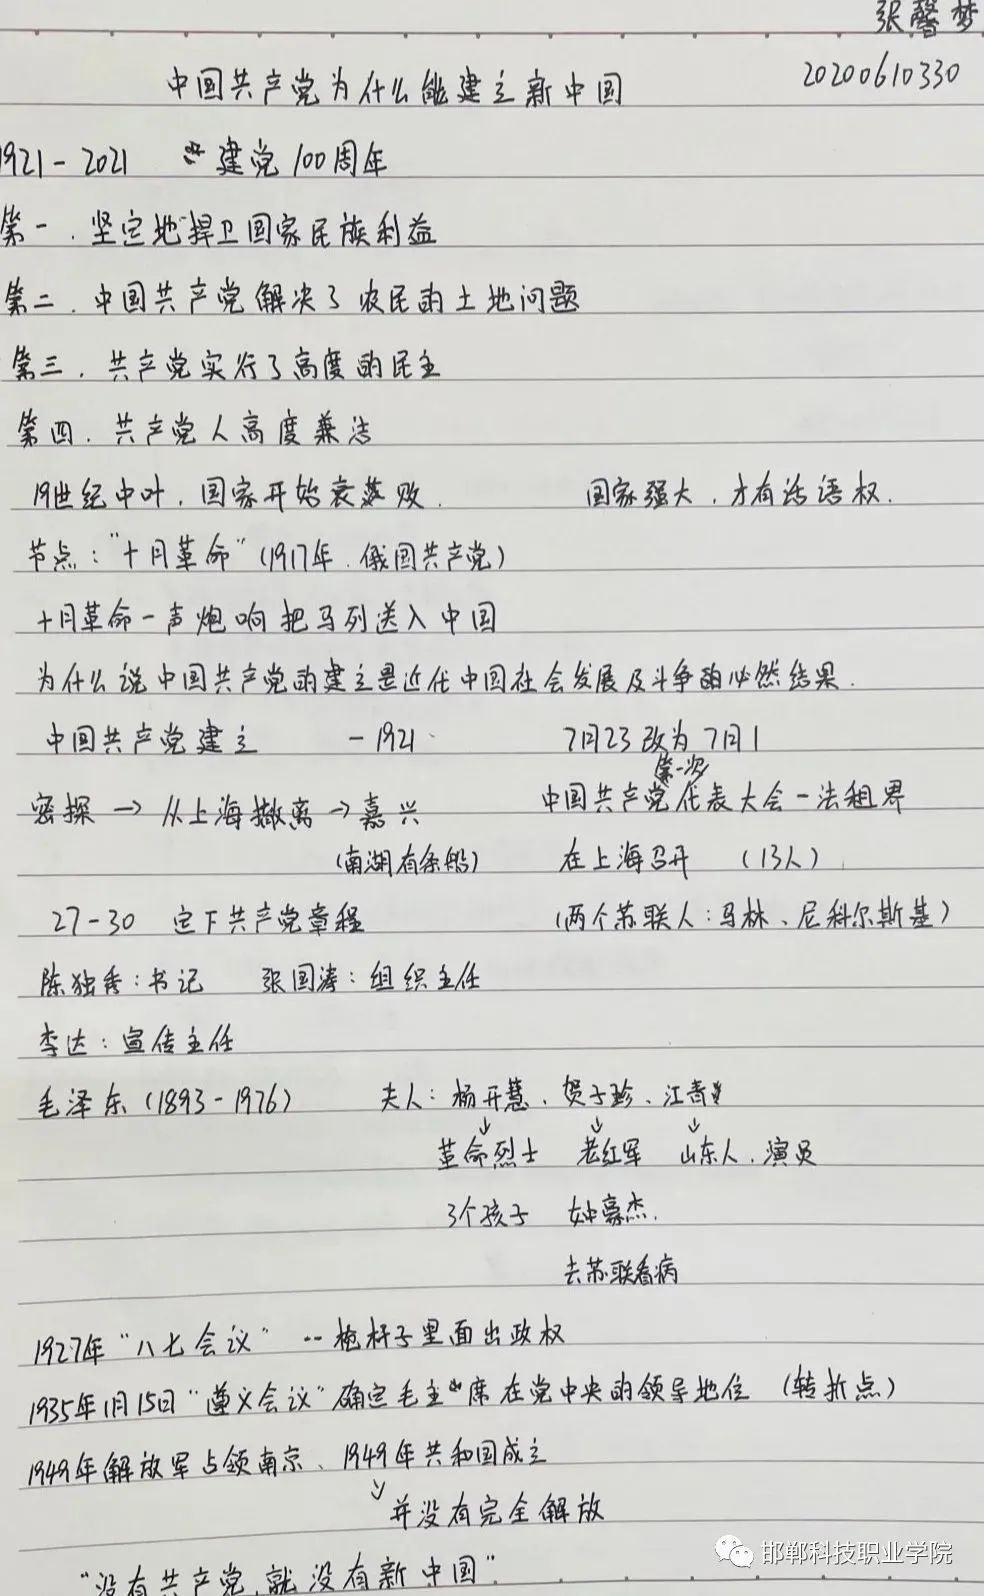 张馨梦
中国共产党为什么能建立新中国 20200610330
1921-2021 建党100周年
第一.坚定地捍卫国家民族利益
第二.中国共产党解决了农民的土地问题
第三.共产党实行了高度的民主
第四.共产党人高度兼洁
19世纪中叶,国家开始衰败. 国家强大,才有话语权.
节点:"十月革命"(1917年.俄国共产党)
十月革命一声炮响把马列送入中国
为什么说中国共产党的建立是近代中国社会发展及斗争的必然结果.
中国共产党建立 -1921. 7月23改为7月1
第一次
密探→从上海撤离→嘉兴 中国共产党代表大会-法租界
(南湖有条船) 在上海召开 (13人)
27-30 定下共产党章程 (两个苏联人:马林、尼科尔斯基)
陈独秀:书记 张国涛:组织主任
李达:宣传主任
毛泽东(1893-1976) 夫人:杨开慧、贺子珍、江青
↓ ↓ ↓
革命烈士 老红军 山东人.演员
3个孩子 女中豪杰.
去苏联看病
1927年"八七会议"--枪杆子里面出政权
1935年1月15日"遵义会议"确定毛主席在党中央的领导地位 (转折点)
1949年解放军占领南京、1949年共和国成立
↓并没有完全解放
"没有共产党,就没有新中国"
邯郸科技职业学院